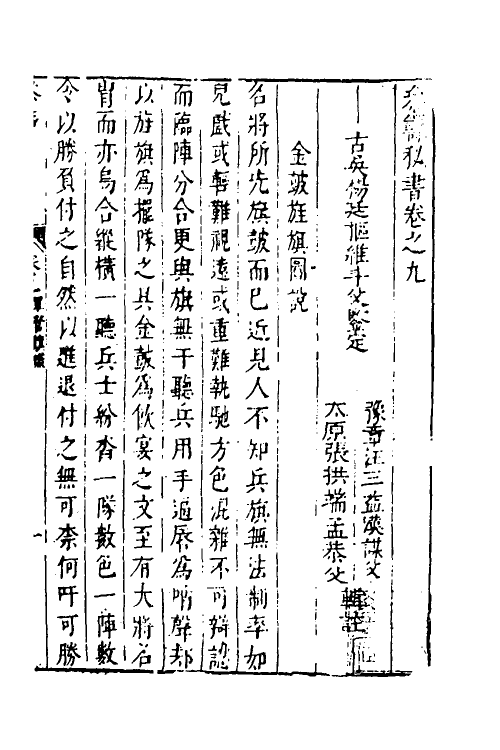 參籌秘書卷之九
古吳楊廷樞維斗父鑒定
豫章汪三益漢謀父
太原張拱端孟恭父
輯註
金鼓旌旗圖說
名將所先旗鼓而已近見人不知兵旗無法制率如
兒戲或輕難視遠或重難執馳方色混雜不可辯認
而臨陣分合更與旗無干聽兵用手逼唇為哨聲却
以旌旗為擺隊之具金鼓為飲宴之文至有大將名
胄而亦烏合縱橫一聽兵士紛沓一隊數色一陣數
令以勝負付之自然以進退付之無可柰何吁可勝
一